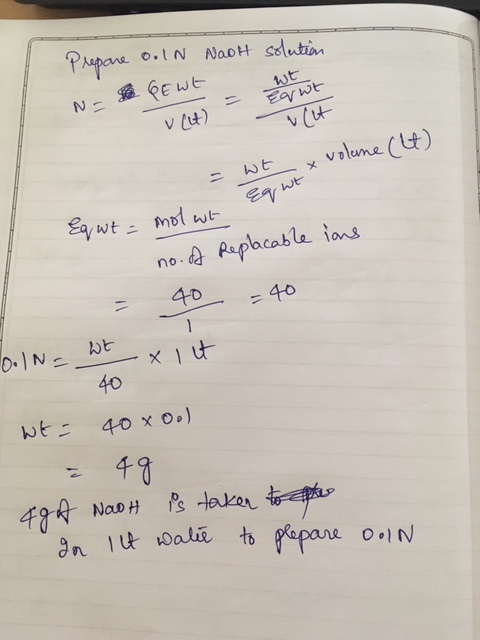 Prepare 0.1N NaOH solution
N = GEwt / V(lt) = wt / Eqwt / V(lt
= wt / Eqwt × volume (lt)
Eqwt = mol wt / no. of Replacable ions
= 40 / 1 = 40
0.1N = wt / 40 × 1 lt
wt = 40 × 0.1
= 4g
4g of NaOH is taken
In 1 lt water to prepare 0.1N